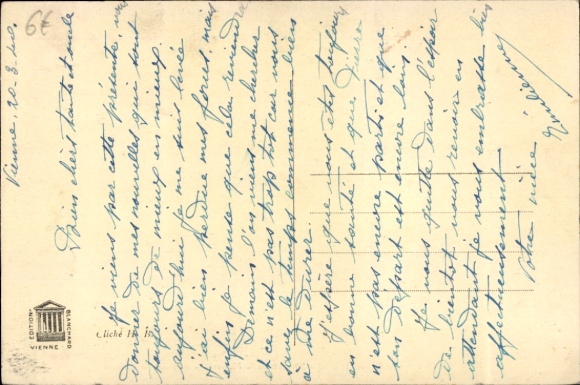 Vienne, 20-3-40.
Bien chers tante et oncle
Je viens par cette présente, vous
donner de mes nouvelles qui sont
toujours de mieux en mieux.
aujourd'hui je me suis levée
j'ai bien perdue mes forces, mais
enfin je pense que cela reviendra
Demain l'on viens me chercher
et ce n'est pas trop tôt car vous
savez le temps commence bien
à me durer.
J'espère que vous êtes toujours
en bonne santé et que Pierre
n'est pas encore parti et que
son départ est encore loin
Je vous quitte dans l'espoir
de bientôt vous revoir en
attendant je vous embrasse bien
affectueusement.
Votre nièce
6€
EDITION
BLANCHARD
VIENNE
Cliché